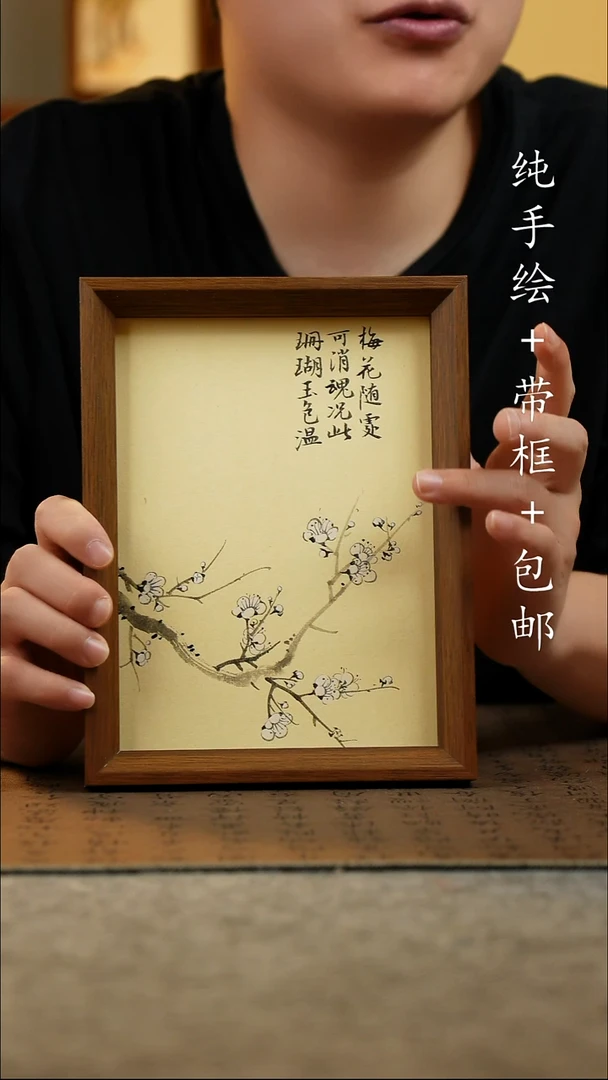 纯手绘+带框+包邮
梅花随處
可消魂况此
珊瑚玉色温